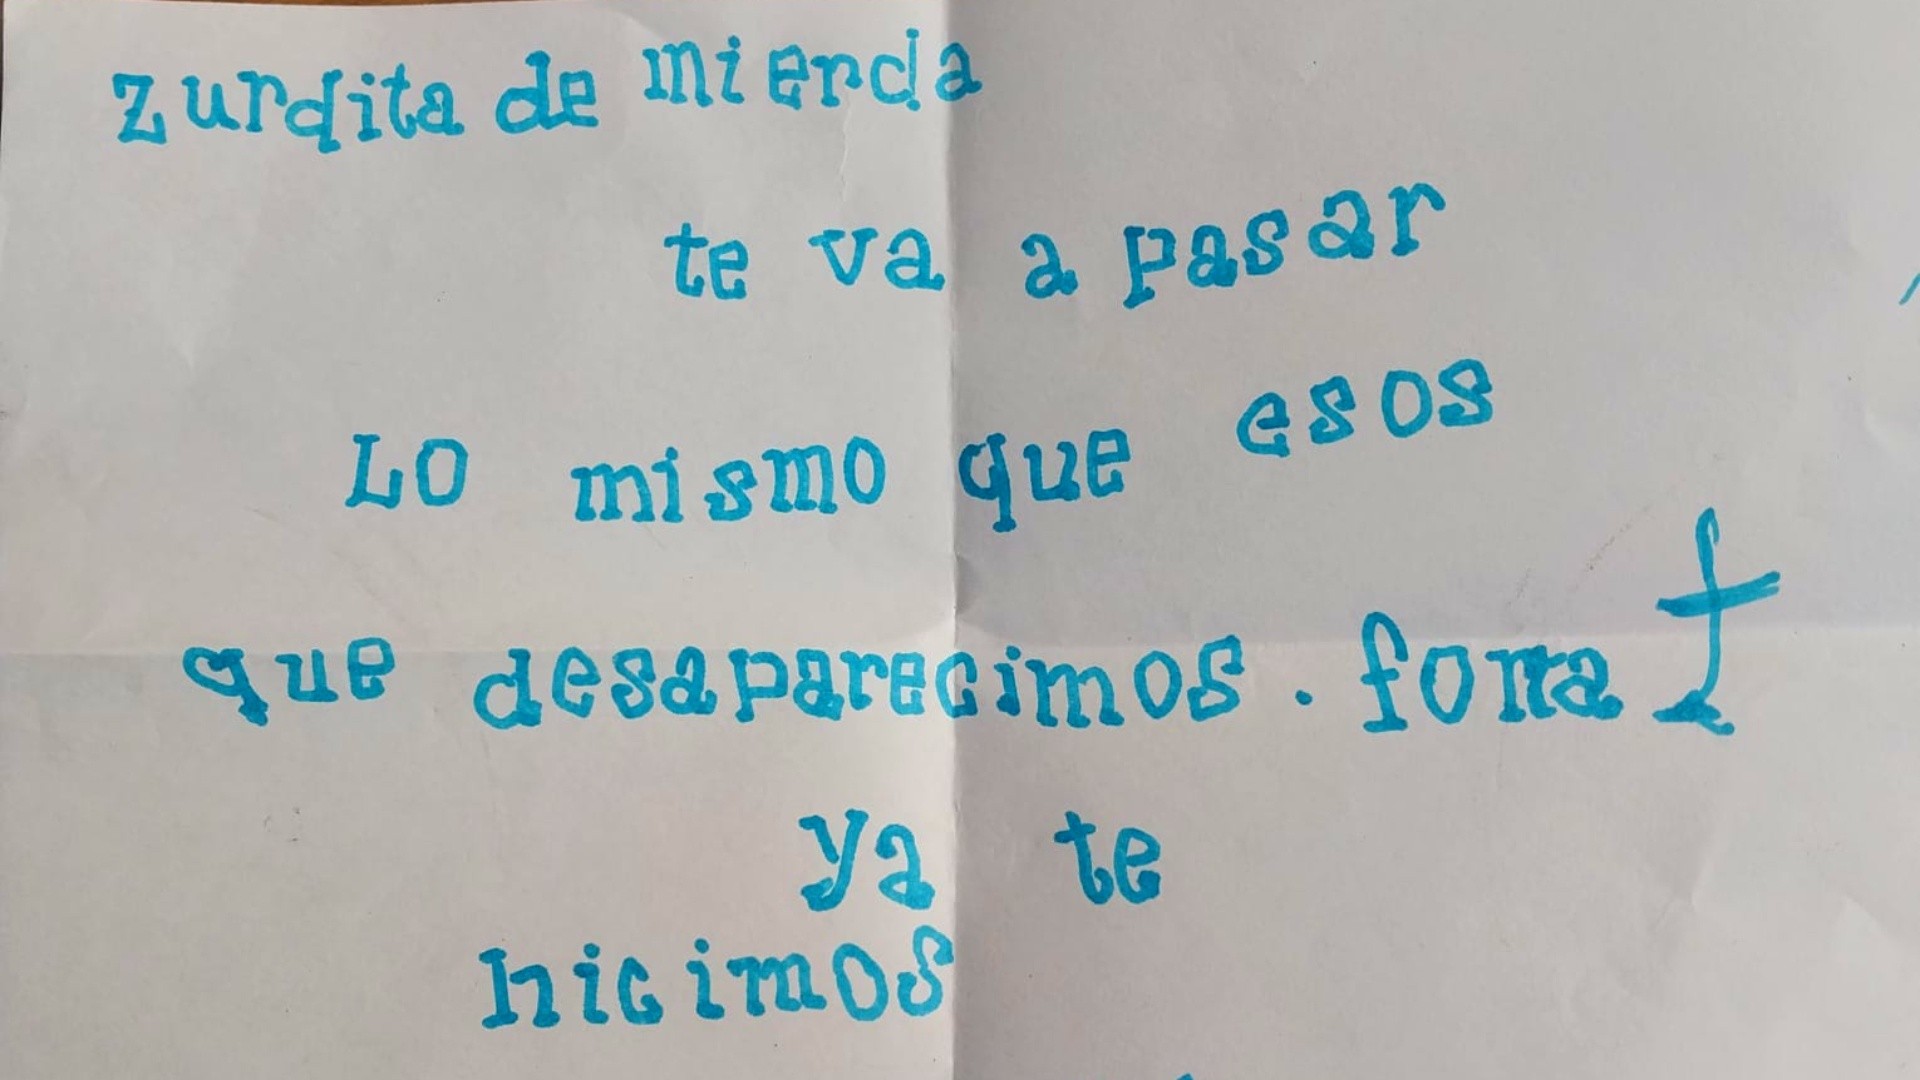 zurdita de mierda
te va a pasar
Lo mismo que esos
que desaparecimos. forra
ya te
hicimos